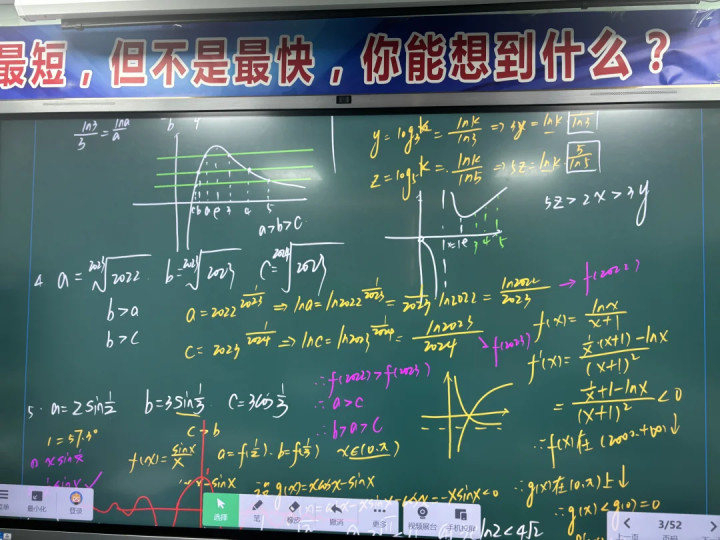 最短，但不是最快，你能想到什么？
ln3/3 = lna/a
a>b>c
y=log₃k = lnk/ln3 ⇒ 3y = lnk · 3/ln3
z=log₅k = lnk/ln5 ⇒ 5z = lnk · 5/ln5
5z>2x>3y
4. a = ²⁰²³√2022 b = ²⁰²³√2023 c = ²⁰²⁴√2023
b>a
b>c
a = 2022^(1/2023) ⇒ lna = ln2022^(1/2023) = 1/2023 ln2022 = ln2022/2023 → f(2022)
c = 2023^(1/2024) ⇒ lnc = ln2023^(1/2024) = ln2023/2024 ↘ f(2023)
∴ f(2022)>f(2023)
∴ a>c
∴ b>a>c
f(x) = lnx/(x+1)
f'(x) = (1/x·(x+1) − lnx)/(x+1)²
= (1/x+1−lnx)/(x+1)² < 0
∴ f(x)在(2022,+∞)↓
5. a=2sin1/2 b=3sin1/3 c=3cos1/3
1=57.3°
c>b
f(x) = sinx/x a=f(1/2) b=f(1/3) x∈(0,π)
g(x)=xcosx−sinx
∴ g(x)在(0,π)上↓
∴ g(x)<g(0)=0
最小化
登录
选择
笔
橡皮
撤消
更多
视频展台
手机投屏
3/52